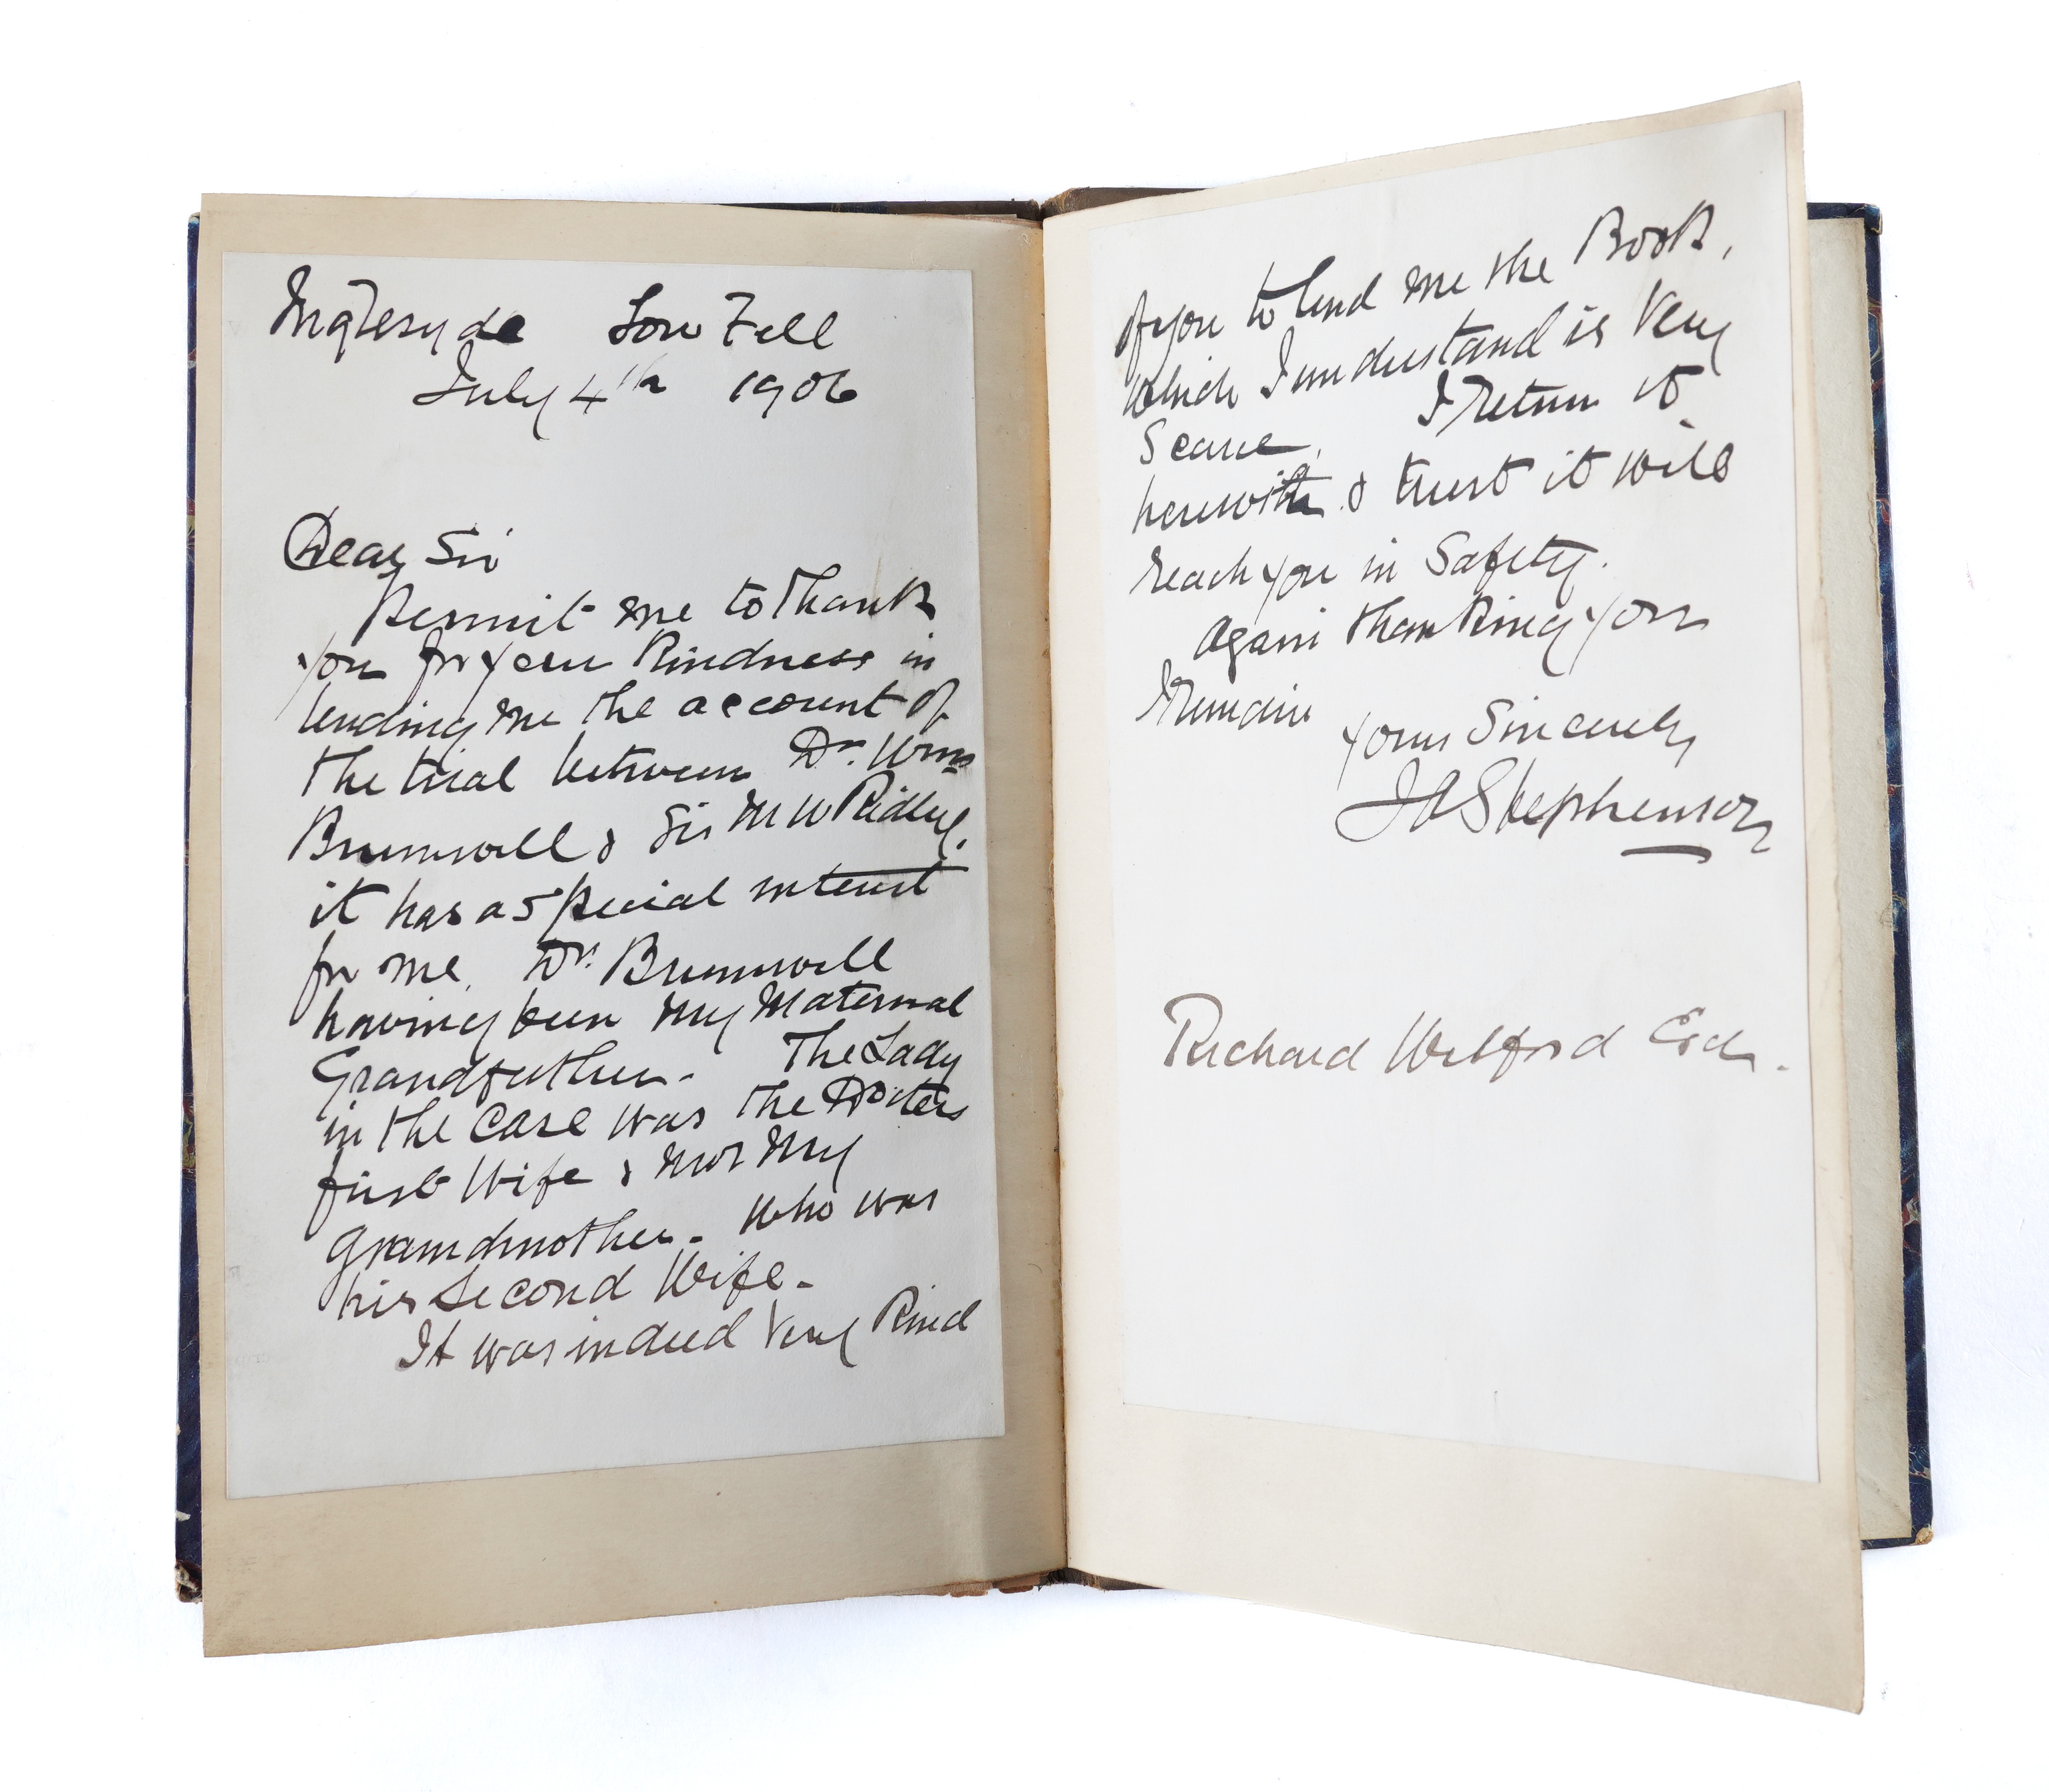 Ingleside Low Fell
July 4th 1906
Dear Sir
Permit me to thank
you for your kindness in
lending me the account of
the trial between Dr. Wm
Brumwell & Sir M W Ridley.
it has a special interest
for me. Dr. Brumwell
having been my Maternal
Grandfather - The Lady
in the case was the Doctors
first Wife & not my
Grandmother - who was
his second Wife -
It was indeed very kind
of you to lend me the Book,
which I understand is very
Scarce. I return it
herewith & trust it will
reach you in Safety.
Again thanking you
I remain
yours Sincerely
J A Stephenson
Richard Welford Esq.